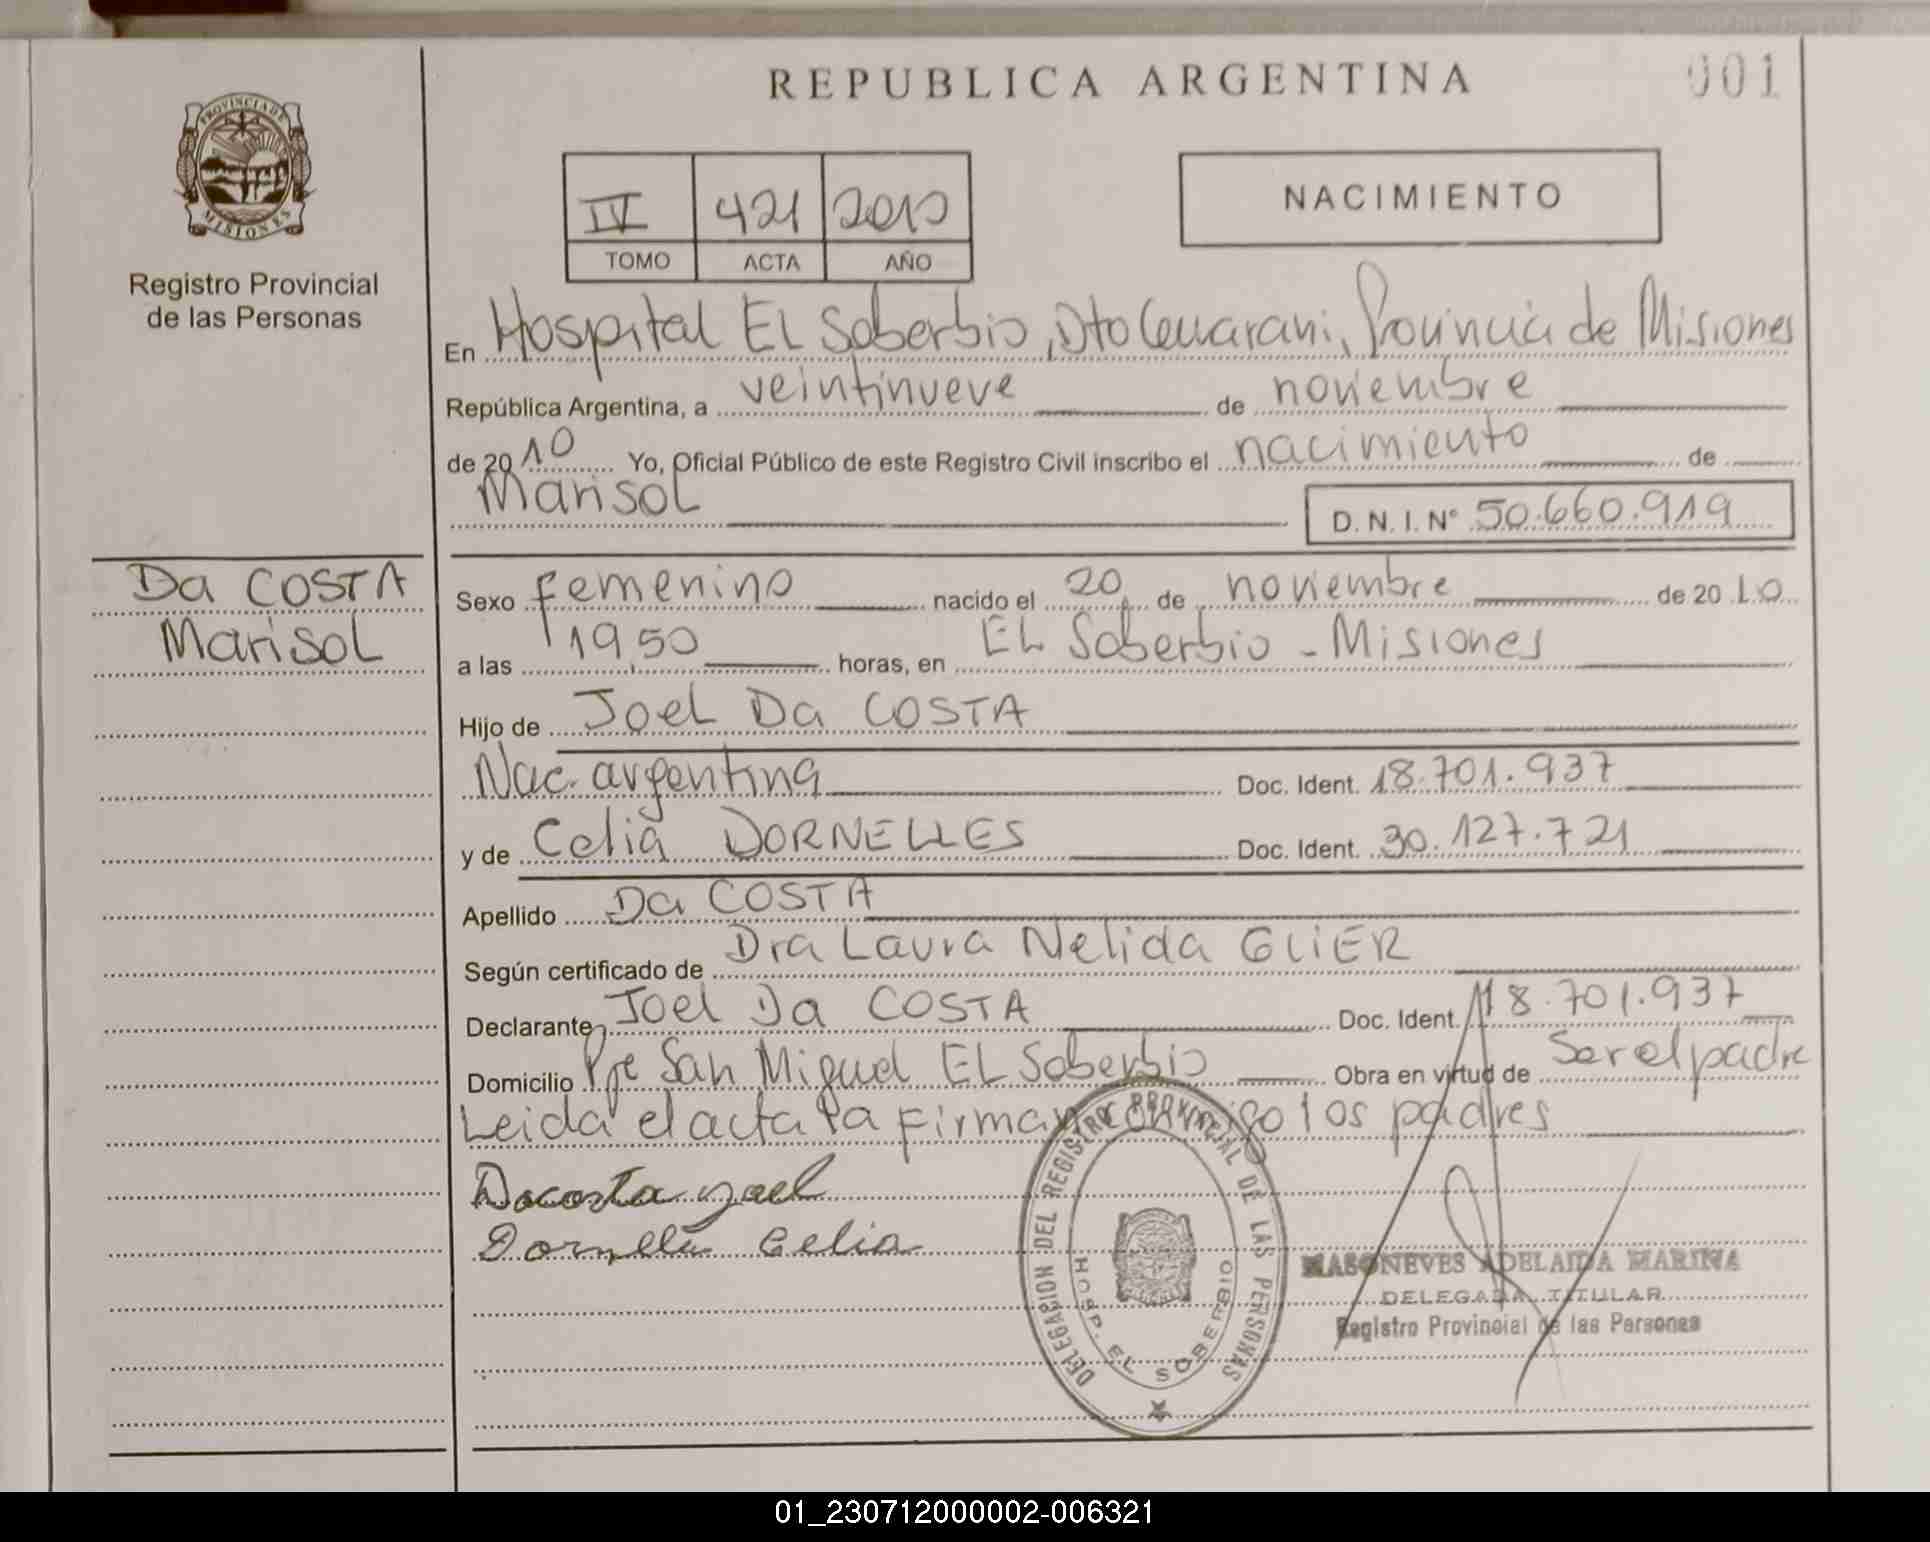 REPUBLICA ARGENTINA
001
PROVINCIA DE
MISIONES
Registro Provincial
de las Personas
IV 421 2010
TOMO ACTA AÑO
NACIMIENTO
En Hospital EL Soberbio, Dto Guarani, Provincia de Misiones
República Argentina, a veintinueve de noviembre
de 2010 Yo, Oficial Público de este Registro Civil inscribo el nacimiento de
Marisol
D.N.I. Nº 50.660.919
Da COSTA
Marisol
Sexo Femenino nacido el 20 de noviembre de 2010
a las 19,50 horas, en EL Soberbio - Misiones
Hijo de Joel Da COSTA
Nac. argentina Doc. Ident. 18.701.937
y de Celia DORNELLES Doc. Ident. 30.127.721
Apellido Da COSTA
Según certificado de Dra Laura Nelida GLIER
Declarante Joel Da COSTA Doc. Ident. 18.701.937
Domicilio Pje San Miguel EL Soberbio Obra en virtud de Ser el padre
Leida el acta la firman conmigo los padres
Dacosta Joel
Dornelle Celia
DELEGACION DEL REGISTRO PROVINCIAL DE LAS PERSONAS
HOSP. EL SOBERBIO
MASONEVES ADELAIDA MARINA
DELEGADA TITULAR
Registro Provincial de las Personas
01_230712000002-006321